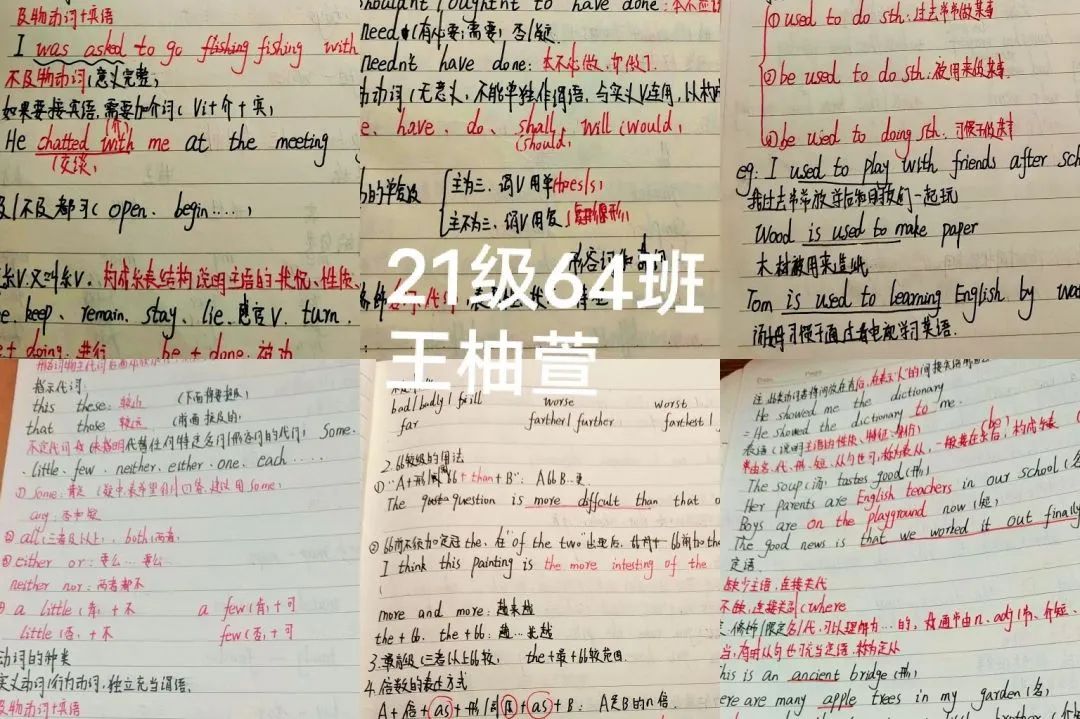 及物动词+宾语
I was asked to go flishing fishing with
不及物动词(意义完整)
如果要接宾语,需要加介词(Vi+介+宾)
(介)
He chatted with me at the meeting
(交谈)
及/不及都可( open、begin……)
系V.又叫系V. 构成系表结构说明主语的状况、性质、
keep、remain、stay、lie、感官V、turn、
+ doing:进行 be + done:被动
shouldn't / ought n't to have done:本不应该
need (有必要;需要) 否/疑
needn't have done:本不必做,却做了
助动词(无意义,不能单独作谓语,与实义V连用,以构成
have、do、shall、will (would)
(should)
的单复数
主为三、谓V用单(does/s)
主不为三、谓V用复(动词原形)
21级64班
王柚萱
① used to do sth:过去常常做某事
② be used to do sth.被用来做某事
③ be used to doing sth:习惯于做某事
eg: I used to play with friends after sch
我过去常常放学后和朋友们一起玩
Wood is used to make paper
木材被用来造纸
Tom is used to learning English by wat
汤姆习惯于通过看电视学习英语.
指示代词:
this these:较近 (下面将要提及)
that those 较远 (前面提及的)
代替任何特定名词/形容词的代词: Some、
little、few、neither、either、one、each……
① some:肯定 (疑中表希望得到回答,建议用some)
any:否中疑
② all(三者及以上)、both(两者)
③ either or:要么…要么
neither nor:两者都不
a little(肯)+不 a few(肯)+可
little(否)+不 few(否)+可
动词的种类
实义动词/行为动词,独立充当谓语.
及物动词+宾语
bad / badly / ill worse worst
far farther / further farthest /
2.比较级的用法
① "A+形/副比+than+B": A比B…更
The quest question is more diffcult than that o
② 比前不能加定冠the、在"of the two"出里后,比前加the
I think this painting is the more intesting of the
more and more:越来越
the+比,the+比:越…越
3.最高级(三者以上比较) the+最+比较范围.
4.倍数的表达方式
A+倍+as+形/副原+as+B: A是B的n倍.
He showed me the dictionary
= He showed the dictionary to me.
表语(说明主语的性质、特征、身份)
(be)
The soup(汤) tastes good(形)
Her parents are English teachers in our school(名
Boys are on the playground now(短)
The good news is that we worked it out finally
定语
缺少主语,连接关代
不缺,连接关副(where
This is an ancient bridge(形)
There are many apple trees in my garden(名)